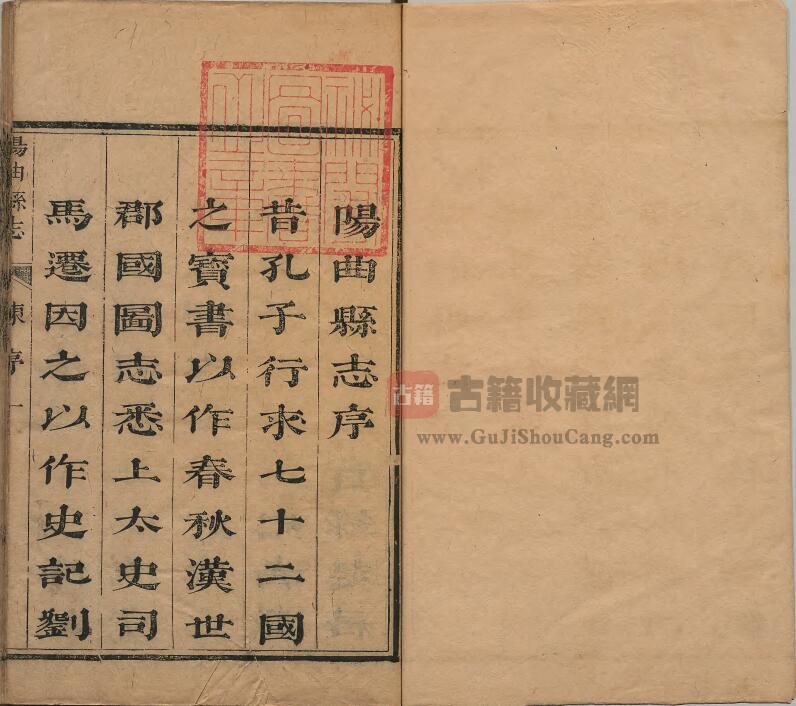 陽曲縣志序
昔孔子行求七十二國
之寳書以作春秋漢世
郡國圖志悉上太史司
馬遷因之以作史記劉
陽曲縣志 陳序 一
古籍 古籍收藏網
www.GuJiShouCang.com